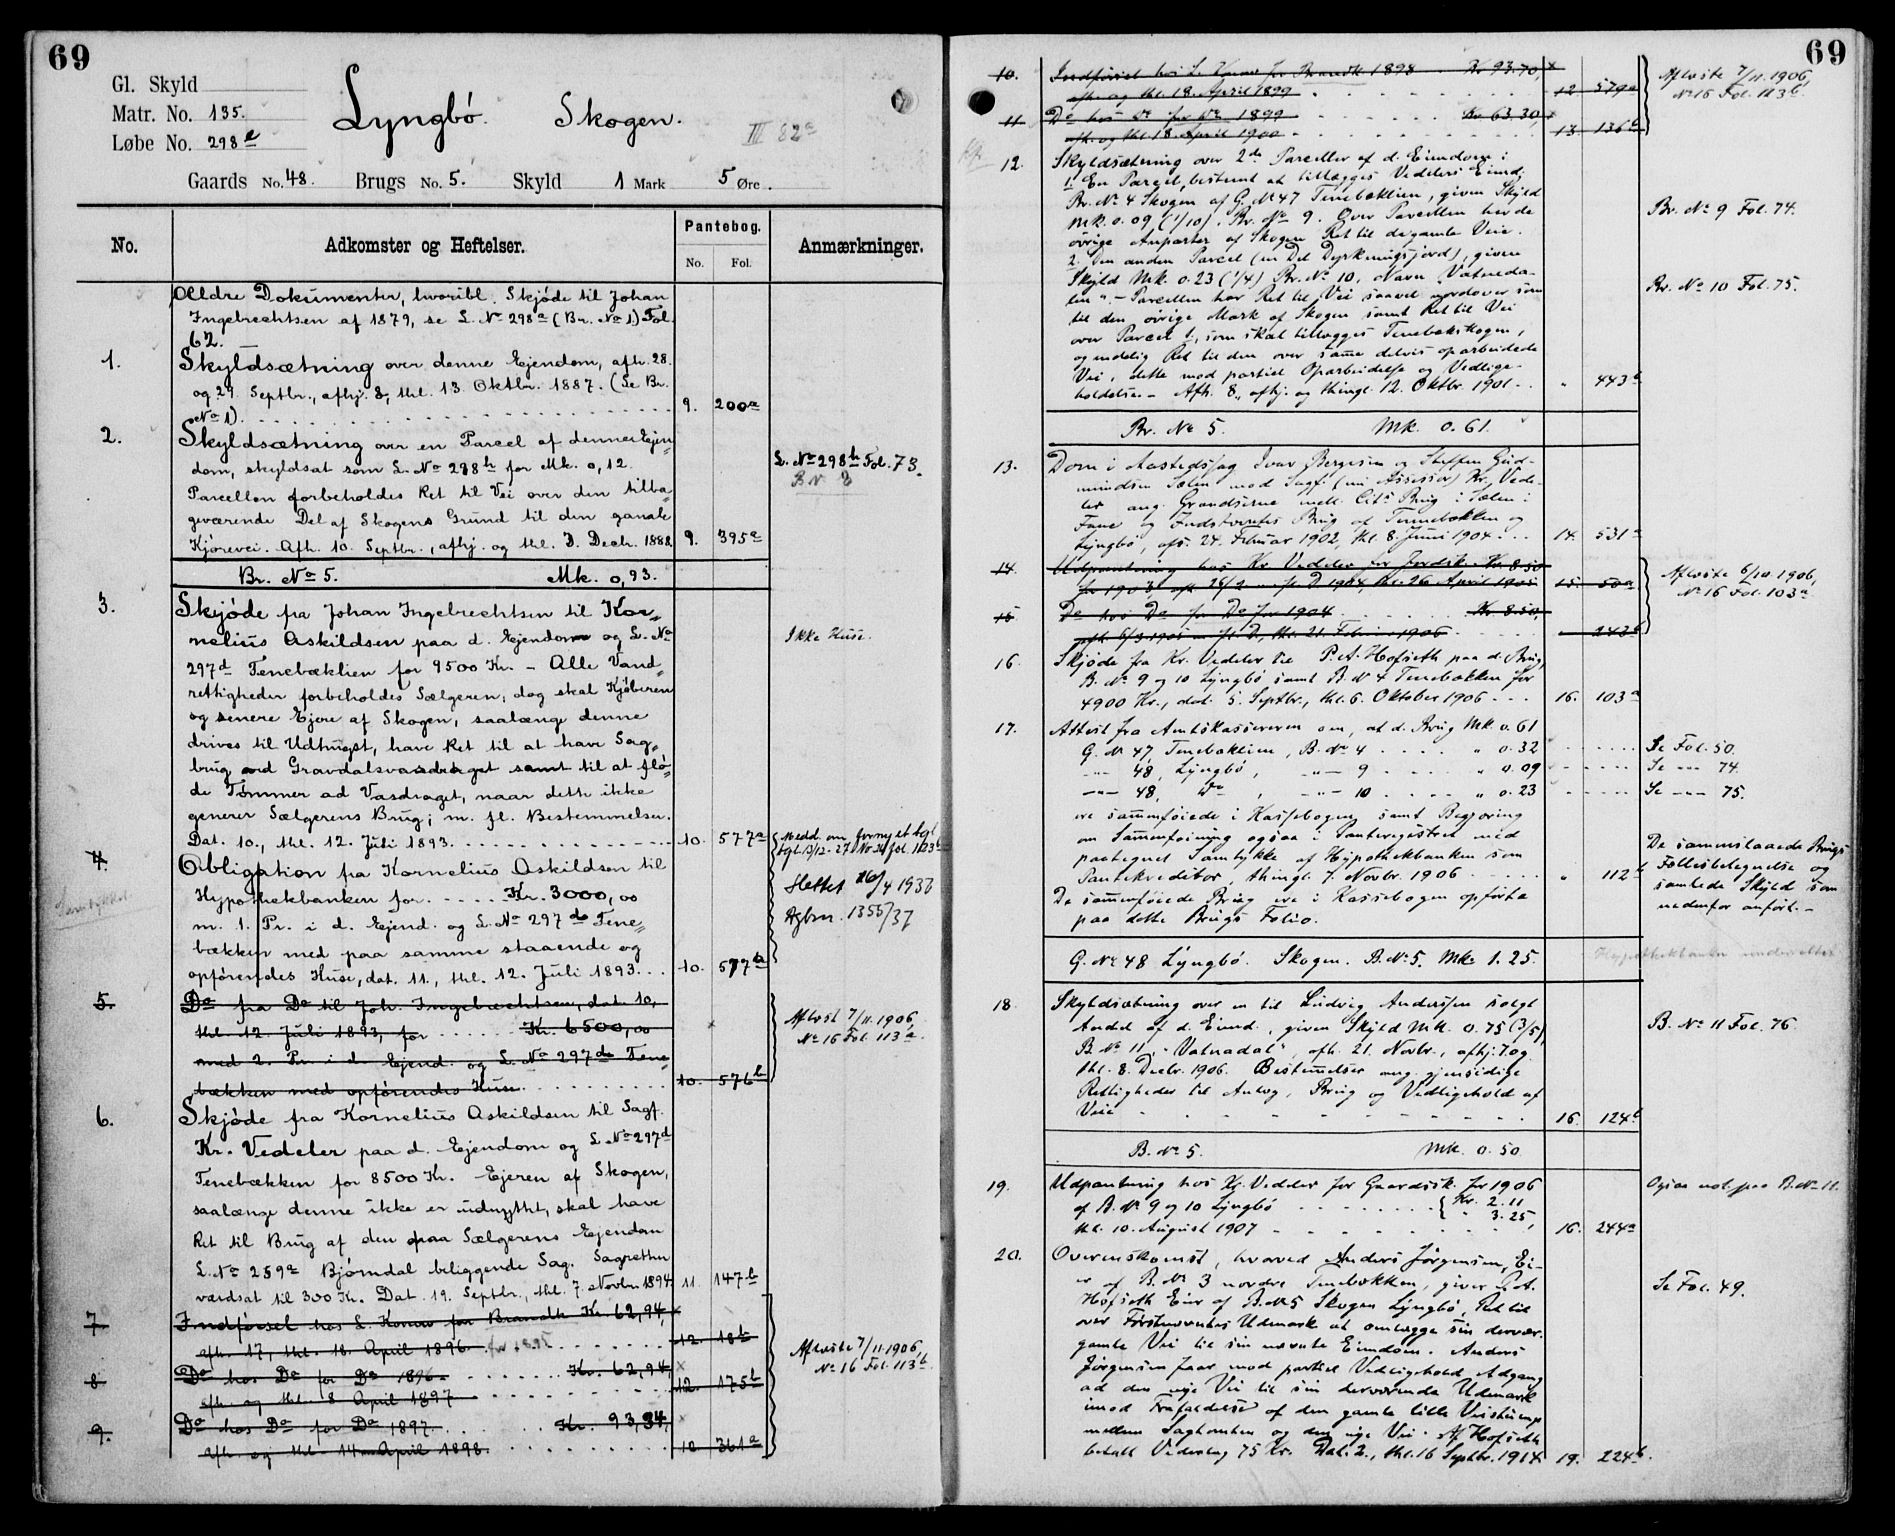 69
Gl. Skyld
Matr. No. 135.
Løbe No. 298e
Lyngbö. Skogen.
III 82a
Gaards No. 48. Brugs No. 5. Skyld 1 Mark 5 Øre.
No. Adkomster og Heftelser. Pantebog. No. Fol. Anmærkninger.
Ældre Dokumenter, hvoribl. Skjöde til Johan
Ingebrechtsen af 1879, se L. No 298a (Br. No 1) Fol.
62.
1. Skyldsætning over denne Ejendom, afh. 28.
og 29. Septbr., afhj. &, thl. 13. Oktbr. 1887. (Se Br.
No 1). 9. 200a
2. Skyldsætning over en Parcel af denne Ejen„
dom, skyldsat som L. No 298h for Mk. 0,12. L. No 298h Fol. 73.
Parcellen forbeholdes Ret til Vei over den tilba„
geværende Del af Skogens Grund til den gamle
Kjörevei. Afh. 10. Septbr., afhj. og thl. 3. Decbr. 1888. 9. 395a
Br. No 5. Mk. 0,93.
3. Skjöde fra Johan Ingebrechtsen til Kor„
nelius Askildsen paa d. Ejendom og L. No Ikke Huse.
297d Tenebæklien for 9500 Kr. - Alle Vand
rettigheder forbeholdes Sælgeren, dog skal Kjöberen
og senere Ejere af Skogen, saalænge denne
drives til Udhugst, have Ret til at have Sag„
brug ved Gravdalsvasdraget samt til at flö„
de Tömmer ad Vasdraget, naar dette ikke
generer Sælgerens Brug; m. fl. Bestemmelser.
Dat. 10., thl. 12. Juli 1893. 10. 577a
Medd. om fornyet tgl.
4. Obligation fra Kornelius Askildsen til
Hypothekbanken for Kr. 3000,00
Slettet 16/4 1937
m. 1. Pr. i d. Ejend. og L. No 297d Tene„
Dgbnr. 1355/37
bækken med paa samme staaende og
opförendes Huse, dat. 11., thl. 12. Juli 1893. 10. 577b
5. Do fra Do til Joh. Ingebrechtsen, dat. 10.,
thl. 12. Juli 1893, for Kr. 6500,00 Aflöst 7/11.1906,
No 16 Fol. 113a.
med 2. Pr. i d. Ejend. og L. No 297d Tene„
bækken med opförendes Huse. 10. 576b
6. Skjöde fra Kornelius Askildsen til Sagf.
Kr. Vedeler paa d. Ejendom og L. No 297d
Tenebækken for 8500 Kr. Ejeren af Skogen,
saalænge denne ikke er udnyttet, skal have
Ret til Brug af den paa Sælgerens Ejendom
L. No 259a Björndal beliggende Sag. Sagretten
værdsat til 300 Kr. Dat. 19. Septbr., thl. 7. Novbr. 1894. 11. 147b
7. Indförsel hos L. Konow for Brandk. Kr. 62,94,
afh. 17., thl. 18. April 1896. for 1895 12. 18b
Aflöste 7/11.1906,
No 16 Fol. 113b.
8 Do hos Do for Do 1896. Kr. 62,94,
afh. og thl. 8 April 1897 12. 175b
9. Do hos Do for Do 1897. Kr. 93,34,
afh. og thl. 14 April 1898. 12 361a
69
10. Indförsel hos L. Konow for Brandk 1898 Kr 93.70,
afh. og thl. 18. April 1899 12 579a
Aflöste 7/11.1906,
No 16 Fol. 113b.
11 Do hos do for do 1899 Kr 63.30,
afh. og thl. 18. April 1900 13. 136b
12. Skyldsætning over 2de Parceller af d. Eiendom:
1. En Parcel, bestemt at tillægges Vedelers Eiend,
Br. No 4 Skogen af G. No 47 Tenebæklien, given Skyld
Mk. 0.09 (1/10). Br. No 9. Over Parcellen har de Br. No 9 Fol. 74.
övrige Anparter af Skogen Ret til de gamle Veie.
2. Den anden Parcel (en Del Dyrkningsjord), given
Skyld Mk. 0.23 (1/4) Br. No 10, Navn „Vatneda-
len“. - Parcellen har Ret til Vei saavel nordover som Br. No 10 Fol. 75.
til den övrige Mark af Skogen samt Ret til Vei
over Parcel 1, som skal tillægges Tenebækskogen,
og endelig Ret til den over samme delvis oparbeidede
Vei, dette mod partiel Oparbeidelse og Vedlige-
holdelse. - Afh. 8., afhj. og thingl. 12. Oktbr. 1901. „ 443b
Br. No 5. Mk. 0.61.
13. Dom i Aastedssag Ivar Bergesen og Steffen Gud-
mundsen Sælen mod Sagf. (nu Assessor) Kr. Vede-
ler ang. Grændserne mell. Citr. Brug i Sælen i
Fane og Indstevntes Brug af Tennebækken og
Lyngbö, afs. 24. Februar 1902, thl. 8. Juni 1904. 14. 531a
14. Udpantning hos Kr. Vedeler for Jordsk. Kr. 8.50
for 1903, afh 26/2 1904, thl. 26. April 1905 15. 50a
Aflöste 6/10.1906,
No 16 Fol. 103a
15 Do hos Do for Do for 1904 Kr 8.50,
afh. 6/3 1905, thl. 21. Februar 1906 „ 243b
16. Skjöde fra Kr. Vedeler til P. A. Hofseth paa d. Brug,
B. No 9 og 10 Lyngbö samt B. No 4 Tenebækken for
4900 Kr., dat. 5. Septbr., thl. 6. Oktober 1906 16. 103a
17. Attest fra Amtskassereren om, at d. Brug Mk. 0.61
G. No 47, Tenebæklien, B. No 4 „ 0.32 Se Fol. 50.
-„- 48, Lyngbö, -„- 9 „ 0.09 Se -„- 74.
-„- 48, do, -„- 10 „ 0.23 Se -„- 75.
ere sammenföiede i Kassebogen, samt Begjæring
om Sammenföining ogsaa i Panteregistret med
paategnet Samtykke af Hypothekbanken som
Pantekreditor thingl. 7. Novbr. 1906 „ 112b
De sammenslaaede Brugs
Fællesbetegnelse og
samlede Skyld som
nedenfor anfört. -
De sammenföiede Brug ere i Kassebogen opförte
paa dette Brugs Folio.
G. No 48 Lyngbö. Skogen. B. No 5. Mk. 1.25.
18. Skyldsætning over en til Ludvig Anderssen solgt
Andel af d. Eiend., given Skyld Mk. 0.75 (3/5), B. No 11 Fol. 76.
B. No 11, „Vatnadal“, afh. 21. Novbr., afhj. 7. og
thl. 8. Decbr. 1906. Bestemmelser ang. gjensidige
Rettigheder til Anlæg, Brug og Vedligehold af
Veie 16. 124b
B. No 5. Mk. 0.50
19. Udpantning hos Kr. Vedeler for Gaardsk. for 1906 Ogsaa not. paa B. No 11.
af B. No 9 og 10 Lyngbö Kr. 2.11
„ 3.25,
thl. 10. August 1907 16. 244a
20. Overenskomst, hvorved Anders Jörgensen, Ei-
er af B. No 3 nordre Tenebækken, giver P. A. Se Fol. 49.
Hofseth Eier af B. No 5 Skogen Lyngbö, Ret til
over Förstnævntes Udmark at omlægge sin dervær.
gamle Vei til sin nævnte Eiendom. Anders
Jörgensen faar mod partiel Vedligehold Adgang
ad den nye Vei til sin derværende Udmark
imod Frafaldelse af den gamle lille Veistump
mellem Saghomten og den nye Vei. Af Hofseth
betalt Vederlag 75 Kr. Dat. 2., thl. 16 Septbr. 1914. 19. 224b.